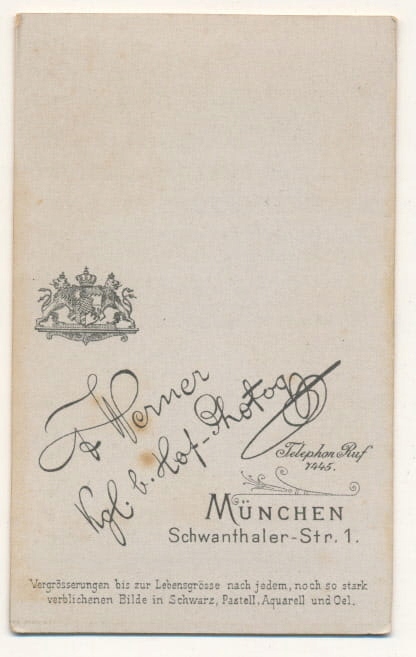 F. Werner
Kgl. b. Hof-Photog
Telephon Ruf
7445.
MÜNCHEN
Schwanthaler-Str. 1.
Vergrösserungen bis zur Lebensgrösse nach jedem, noch so stark
verblichenen Bilde in Schwarz, Pastell, Aquarell und Oel.